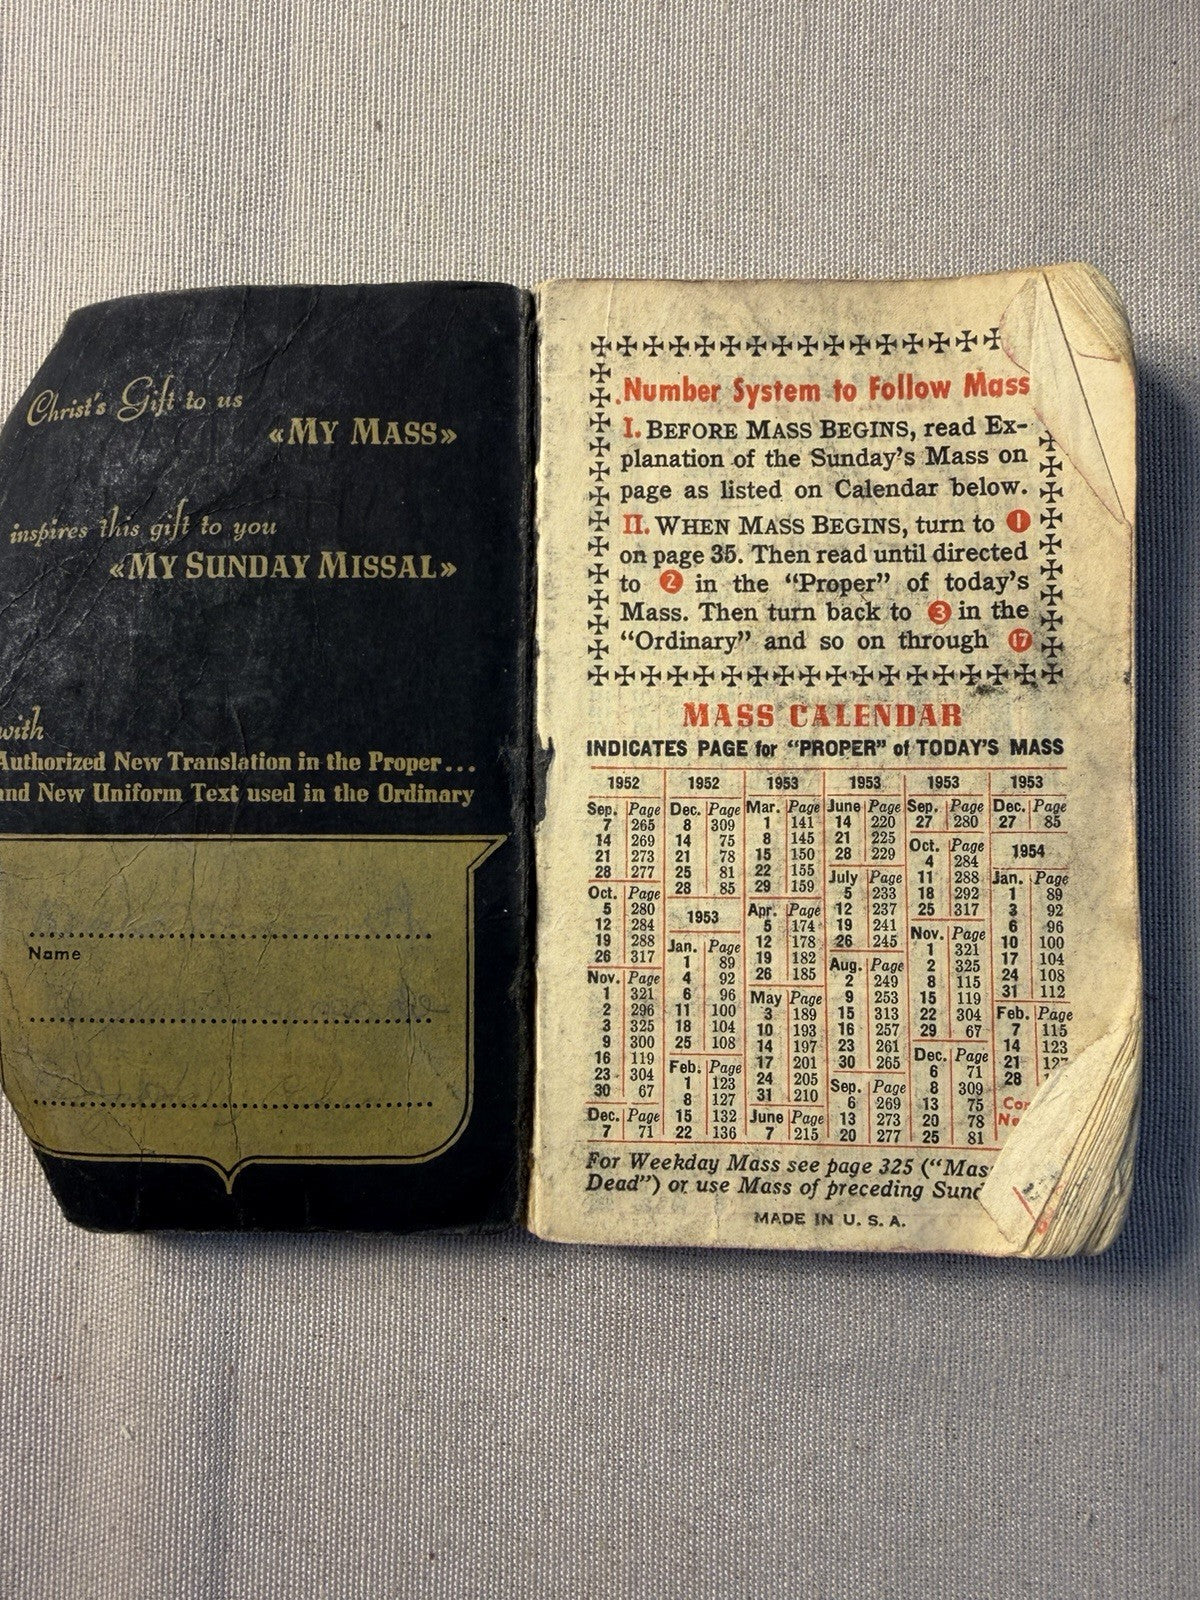 Christ's Gift to us
«MY MASS»
inspires this gift to you
«MY SUNDAY MISSAL»
with
Authorized New Translation in the Proper...
and New Uniform Text used in the Ordinary
Name
Number System to Follow Mass
I. BEFORE MASS BEGINS, read Ex-
planation of the Sunday's Mass on
page as listed on Calendar below.
II. WHEN MASS BEGINS, turn to 1
on page 35. Then read until directed
to 2 in the "Proper" of today's
Mass. Then turn back to 3 in the
"Ordinary" and so on through 17
MASS CALENDAR
INDICATES PAGE for "PROPER" of TODAY'S MASS
1952
Sep. Page
7 265
14 269
21 273
28 277
Oct. Page
5 280
12 284
19 288
26 317
Nov. Page
1 321
2 296
3 325
9 300
16 119
23 304
30 67
Dec. Page
7 71
1952
Dec. Page
8 309
14 75
21 78
25 81
28 85
1953
Jan. Page
1 89
4 92
6 96
11 100
18 104
25 108
Feb. Page
1 123
8 127
15 132
22 136
1953
Mar. Page
1 141
8 145
15 150
22 155
29 159
Apr. Page
5 174
12 178
19 182
26 185
May Page
3 189
10 193
14 197
17 201
24 205
31 210
June Page
7 215
1953
June Page
14 220
21 225
28 229
July Page
5 233
12 237
19 241
26 245
Aug. Page
2 249
9 253
15 313
16 257
23 261
30 265
Sep. Page
6 269
13 273
20 277
1953
Sep. Page
27 280
Oct. Page
4 284
11 288
18 292
25 317
Nov. Page
1 321
2 325
8 115
15 119
22 304
29 67
Dec. Page
6 71
8 309
13 75
20 78
25 81
1953
Dec. Page
27 85
1954
Jan. Page
1 89
3 92
6 96
10 100
17 104
24 108
31 112
Feb. Page
7 115
14 123
21
28
For Weekday Mass see page 325 ("Mass
Dead") or use Mass of preceding
MADE IN U. S. A.